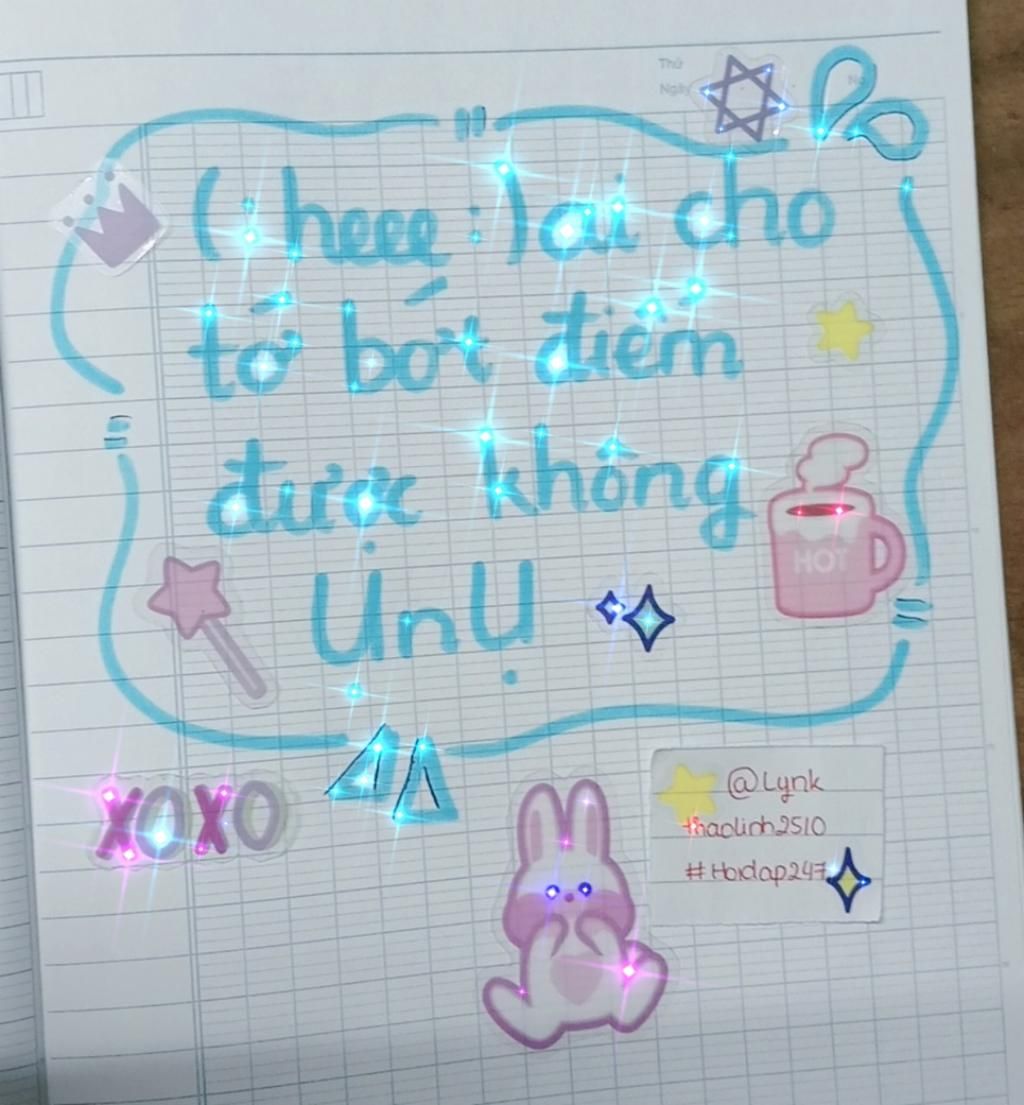 Thứ
Ngày
No
(heee :) ai cho
tớ bớt điểm
được không
ỤnỤ
HOT
XOXO
@Lynk
thaolinh2510
#Hoidap247